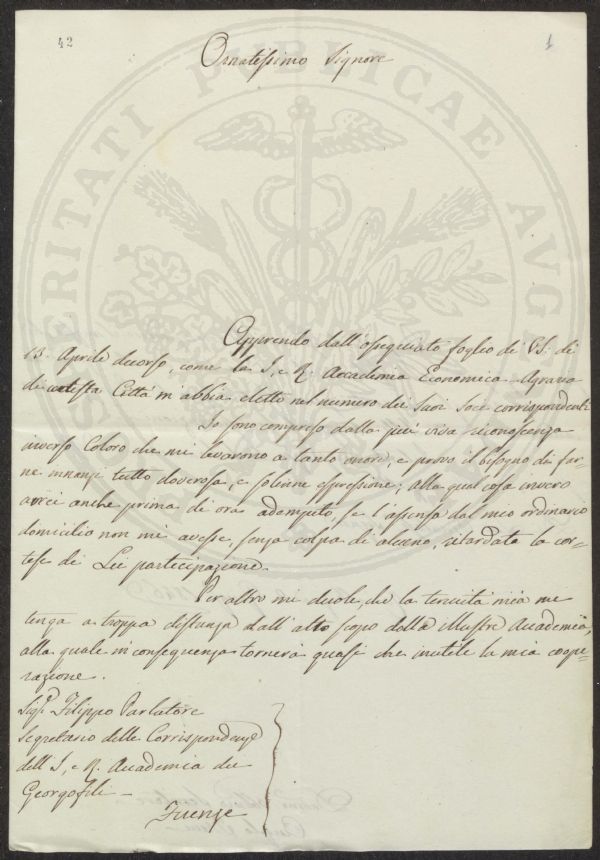 42
1
Ornatissimo Signore
PROSPERITATI PUBLICAE AVGENDAE
Apprendo dall'ossequiato foglio di V.S. di
13. Aprile decorso, come la I, e R. Accademia Economica-Agraria
di cotesta Città m'abbia eletto nel numero dei suoi Soci corrispondenti.
Io sono compreso dalla più viva riconoscenza
inverso Coloro che mi levarono a tanto onore, e provo il bisogno di far=
ne innanzi tutto doverosa, e solenne espressione; alla qual cosa invero
avrei anche prima di ora adempiuto, se l'assenza dal mio ordinario
domicilio non mi avesse, senza colpa di alcuno, ritardata la cor=
tese di Lei partecipazione.
Per altro mi duole, che la tenuità mia me
tenga a troppa distanza dall'alto scopo della illustre Accademia,
alla quale in conseguenza tornerà quasi che inutile la mia coope=
razione.
Sigr. Filippo Parlatore
Segretario delle Corrispondenze
dell'I, e R. Accademia dei
Georgofili-
Firenze